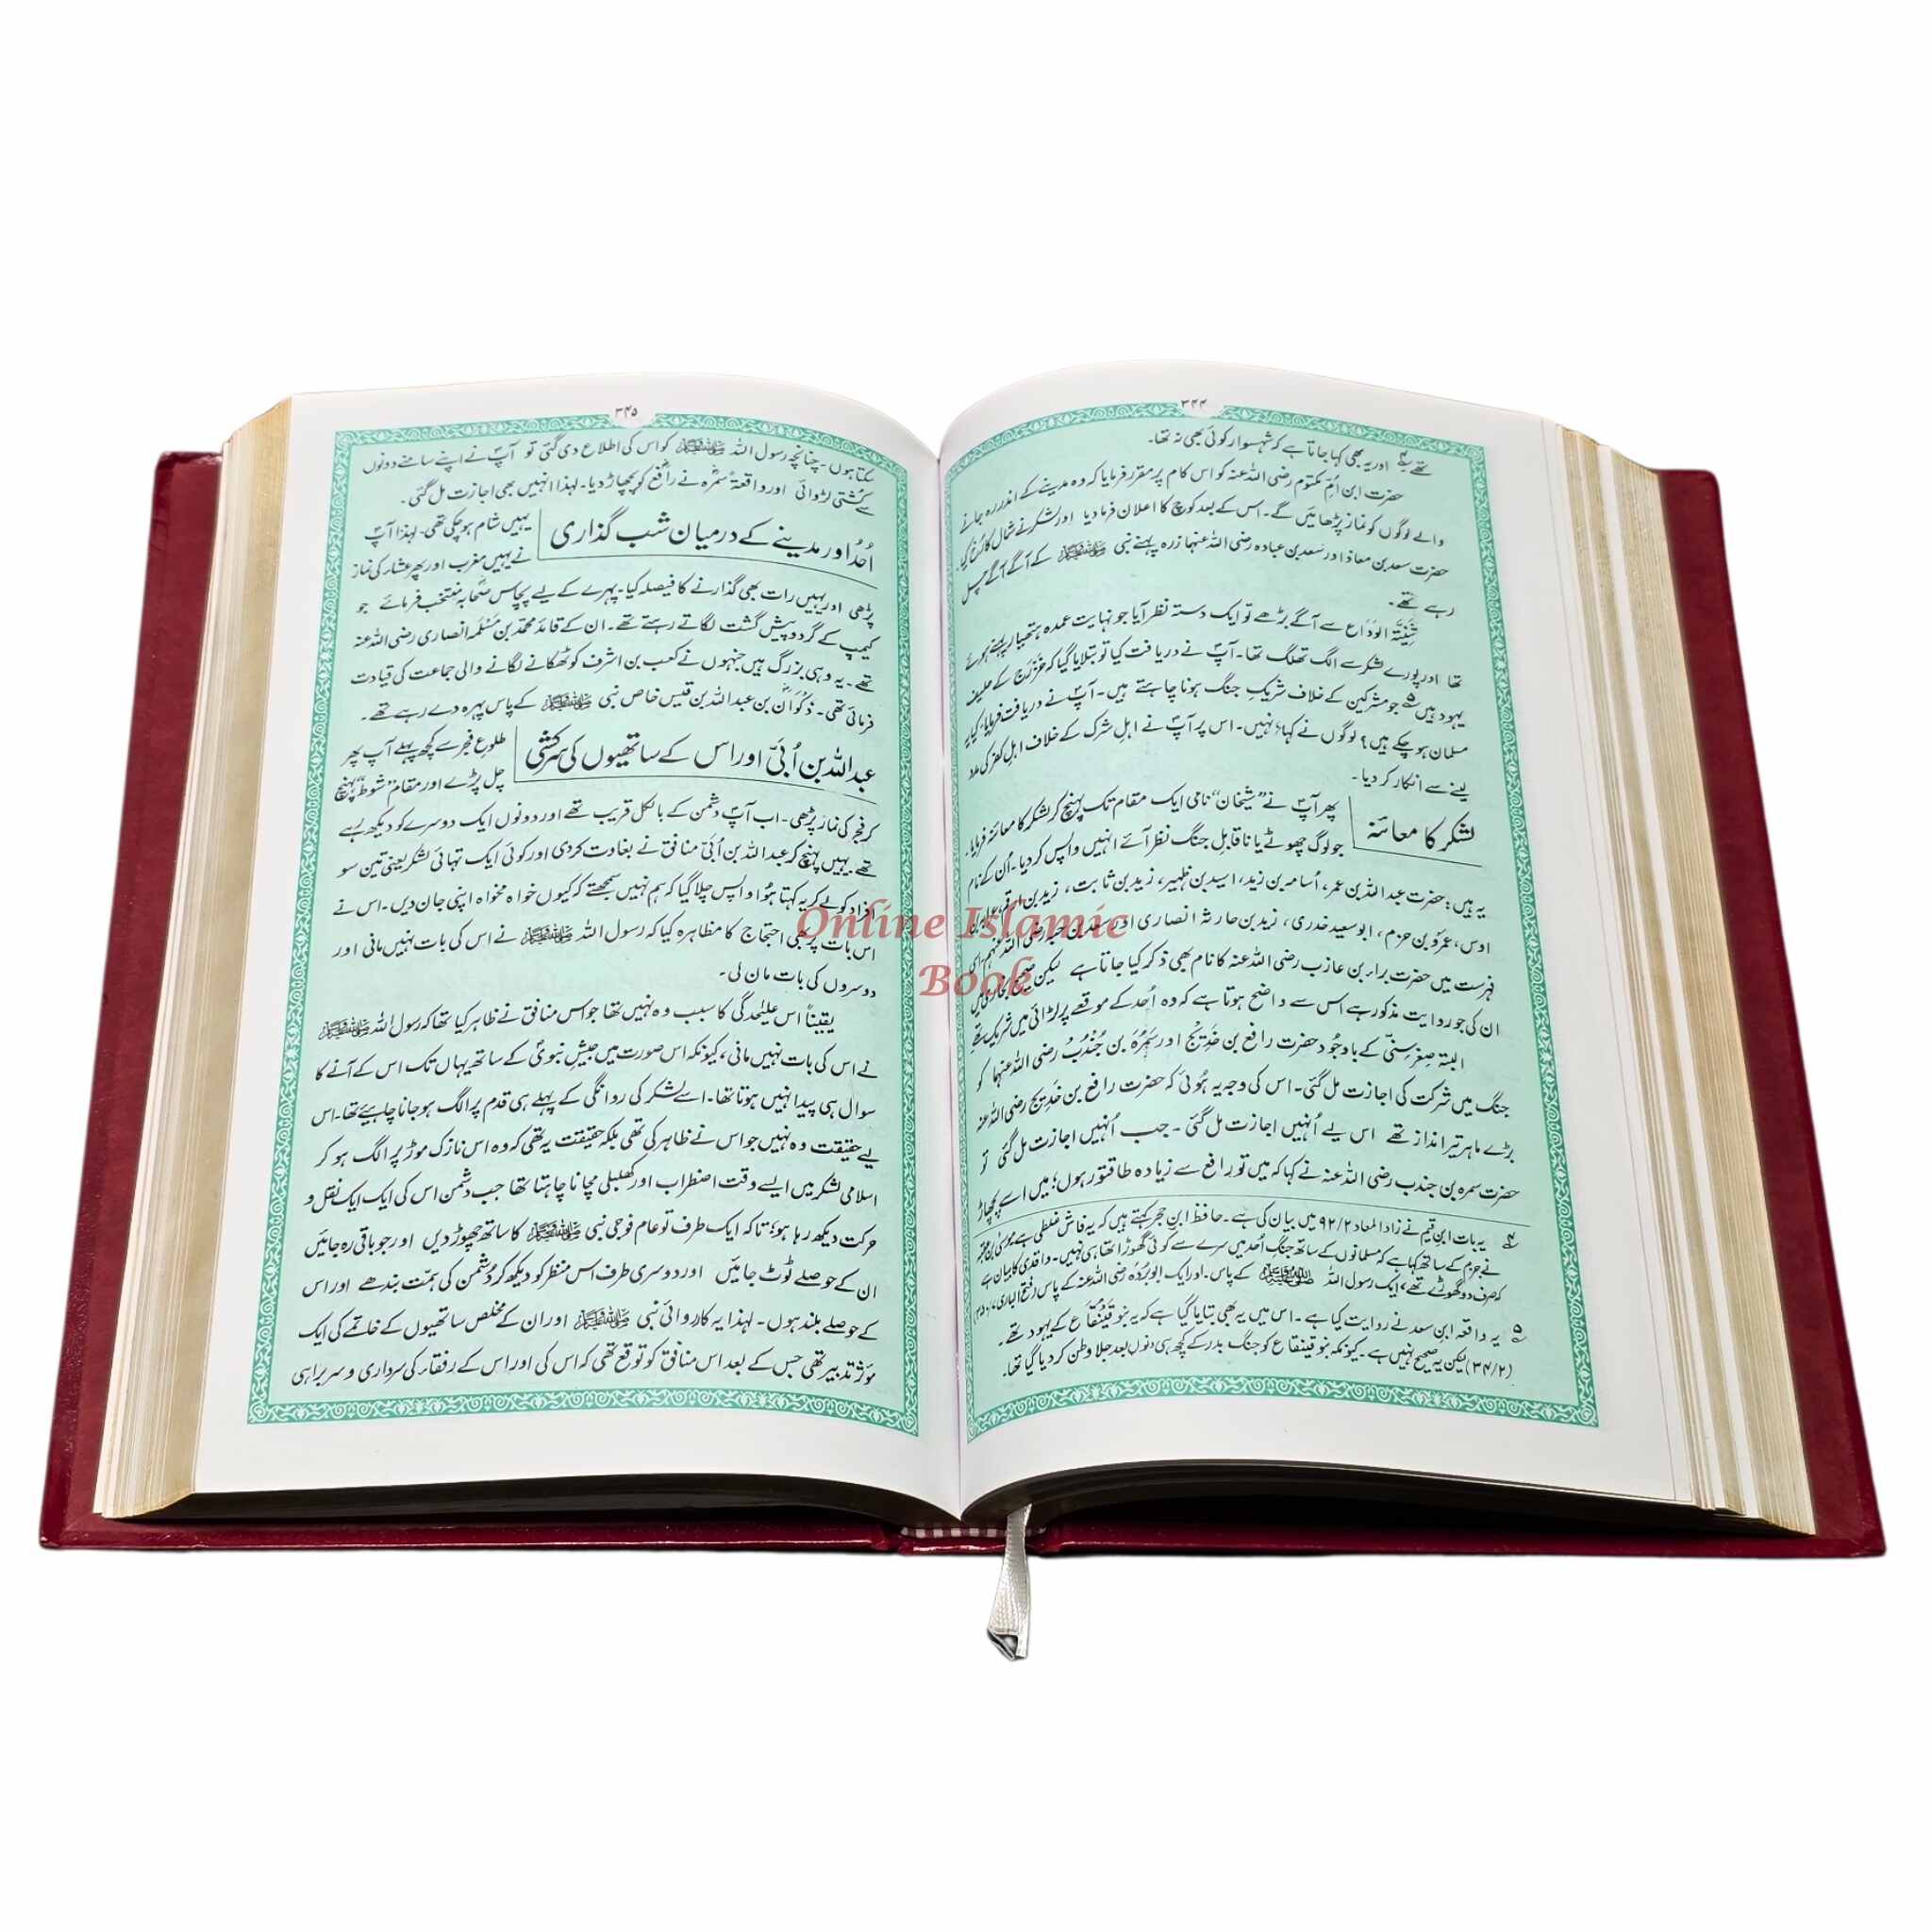 ۳۴۴
تھے۔ اور یہ بھی کہا جاتا ہے کہ شہسوار کوئی بھی نہ تھا۔
حضرت ابن اُمِّ مکتوم رضی اللہ عنہ کو اس کام پر مقرر فرمایا کہ وہ مدینے کے اندر رہ جانے
والے لوگوں کو نماز پڑھائیں گے۔ اس کے بعد کوچ کا اعلان فرما دیا اور لشکر نے شمال کا رُخ کیا۔
حضرت سعد بن معاذ اور سعد بن عبادہ رضی اللہ عنہما زرہ پہنے نبی ﷺ کے آگے آگے چل
رہے تھے۔
ثَنِيَّۃُ الوَدَاع سے آگے بڑھے تو ایک دستہ نظر آیا جو نہایت عمدہ ہتھیار پہنے ہوئے
تھا اور پورے لشکر سے الگ تھلگ تھا۔ آپؐ نے دریافت کیا تو بتلایا گیا کہ خزرج کے حلیف
یہود ہیں۵ جو مشرکین کے خلاف شریک جنگ ہونا چاہتے ہیں۔ آپؐ نے دریافت فرمایا، کیا یہ
مسلمان ہو چکے ہیں؟ لوگوں نے کہا، نہیں۔ اس پر آپؐ نے اہلِ شرک کے خلاف اہلِ کفر کی مدد
لینے سے انکار کر دیا۔
لشکر کا معائنہ
پھر آپؐ نے ”شیخان“ نامی ایک مقام تک پہنچ کر لشکر کا معائنہ فرمایا۔
جو لوگ چھوٹے یا ناقابلِ جنگ نظر آئے انہیں واپس کر دیا۔ اُن کے نام
یہ ہیں: حضرت عبداللہ بن عمر، اُسامہ بن زید، اسید بن ظہیر، زید بن ثابت، زید بن ارقم، عرابہ بن
اوس، عمرو بن حزم، ابوسعید خدری، زید بن حارثہ انصاری اور سعد بن حبہ رضی اللہ عنہم۔ اسی
فہرست میں حضرت براء بن عازب رضی اللہ عنہ کا نام بھی ذکر کیا جاتا ہے لیکن صحیح بخاری میں
ان کی جو روایت مذکور ہے اس سے واضح ہوتا ہے کہ وہ اُحد کے موقعے پر لڑائی میں شریک تھے۔
البتہ صِغرِ سنی کے باوجود حضرت رافع بن خَدِیج اور سَمُرَہ بن جُنْدُب رضی اللہ عنہما کو
جنگ میں شرکت کی اجازت مل گئی۔ اس کی وجہ یہ ہوئی کہ حضرت رافع بن خدیج رضی اللہ عنہ
بڑے ماہر تیرانداز تھے اس لیے اُنہیں اجازت مل گئی۔ جب اُنہیں اجازت مل گئی تو
حضرت سمرہ بن جندب رضی اللہ عنہ نے کہا کہ میں تو رافع سے زیادہ طاقتور ہوں؛ میں اسے پچھاڑ
۴ یہ بات ابنِ قیم نے زاد المعاد ۹۲/۲ میں بیان کی ہے۔ حافظ ابنِ حجر کہتے ہیں کہ یہ فاش غلطی ہے، موسیٰ بن عقبہ
نے جزم کے ساتھ کہا ہے کہ مسلمانوں کے ساتھ جنگِ اُحد میں سرے سے کوئی گھوڑا تھا ہی نہیں۔ واقدی کا بیان ہے
کہ صرف دو گھوڑے تھے، ایک رسول اللہ ﷺ کے پاس۔ اور ایک ابوبُردہ رضی اللہ عنہ کے پاس (فتح الباری
۵ یہ واقعہ ابنِ سعد نے روایت کیا ہے۔ اس میں یہ بھی بتایا گیا ہے کہ یہ بنو قَینُقَاع کے یہود تھے۔
(۳۴/۲) لیکن یہ صحیح نہیں ہے۔ کیونکہ بنو قینقاع کو جنگ بدر کے کچھ ہی دنوں بعد جلا وطن کر دیا گیا تھا۔
۳۴۵
سکتا ہوں۔ چنانچہ رسول اللہ ﷺ کو اس کی اطلاع دی گئی تو آپؐ نے اپنے سامنے دونوں
سے کشتی لڑوائی اور واقعۃً سمُرہؓ نے رافعؓ کو پچھاڑ دیا۔ لہٰذا انہیں بھی اجازت مل گئی۔
اُحد اور مدینے کے درمیان شب گذاری
یہیں شام ہو چکی تھی۔ لہٰذا آپؐ
نے یہیں مغرب اور پھر عشاء کی نماز
پڑھی اور یہیں رات بھی گذارنے کا فیصلہ کیا۔ پہرے کے لیے پچاس صحابہؓ منتخب فرمائے جو
کیمپ کے گرد و پیش گشت لگاتے رہتے تھے۔ ان کے قائد محمد بن مَسْلَمہ انصاری رضی اللہ عنہ
تھے۔ یہ وہی بزرگ ہیں جنہوں نے کعب بن اشرف کو ٹھکانے لگانے والی جماعت کی قیادت
فرمائی تھی۔ ذکوانؓ بن عبداللہ بن قیس خاص نبی ﷺ کے پاس پہرہ دے رہے تھے۔
عبداللہ بن اُبیّ اور اس کے ساتھیوں کی سرکشی
طلوعِ فجر سے کچھ پہلے آپ پھر
چل پڑے اور مقام ”شوط“ پہنچ
کر فجر کی نماز پڑھی۔ اب آپؐ دشمن کے بالکل قریب تھے اور دونوں ایک دوسرے کو دیکھ رہے
تھے یہیں پہنچ کر عبداللہ بن اُبیّ منافق نے بغاوت کر دی اور کوئی ایک تہائی لشکر یعنی تین سو
افراد کو لے کر یہ کہتا ہُوا واپس چلا گیا کہ ہم نہیں سمجھتے کہ کیوں خواہ مخواہ اپنی جان دیں۔ اس نے
اس بات پر بھی احتجاج کا مظاہرہ کیا کہ رسول اللہ ﷺ نے اس کی بات نہیں مانی اور
دوسروں کی بات مان لی۔
یقیناً اس علیٰحدگی کا سبب وہ نہیں تھا جو اس منافق نے ظاہر کیا تھا کہ رسول اللہ ﷺ
نے اس کی بات نہیں مانی، کیونکہ اس صورت میں جیشِ نبویؐ کے ساتھ یہاں تک اس کے آنے کا
سوال ہی پیدا نہیں ہوتا تھا۔ اسے لشکر کی روانگی کے پہلے ہی قدم پر الگ ہو جانا چاہیئے تھا۔ اس
لیے حقیقت وہ نہیں جو اس نے ظاہر کی تھی بلکہ حقیقت یہ تھی کہ وہ اس نازک موڑ پر الگ ہو کر
اسلامی لشکر میں ایسے وقت اضطراب اور کھلبلی مچانا چاہتا تھا جب دشمن اس کی ایک ایک نقل و
حرکت دیکھ رہا ہو؛ تاکہ ایک طرف تو عام فوجی نبی ﷺ کا ساتھ چھوڑ دیں اور جو باقی رہ جائیں
ان کے حوصلے ٹوٹ جائیں اور دوسری طرف اس منظر کو دیکھ کر دشمن کی ہمّت بندھے اور اس
کے حوصلے بلند ہوں۔ لہٰذا یہ کارروائی نبی ﷺ اور ان کے مخلص ساتھیوں کے خاتمے کی ایک
مؤثر تدبیر تھی جس کے بعد اس منافق کو توقع تھی کہ اس کی اور اس کے رفقاء کی سرداری و سربراہی
Online Islamic
Book